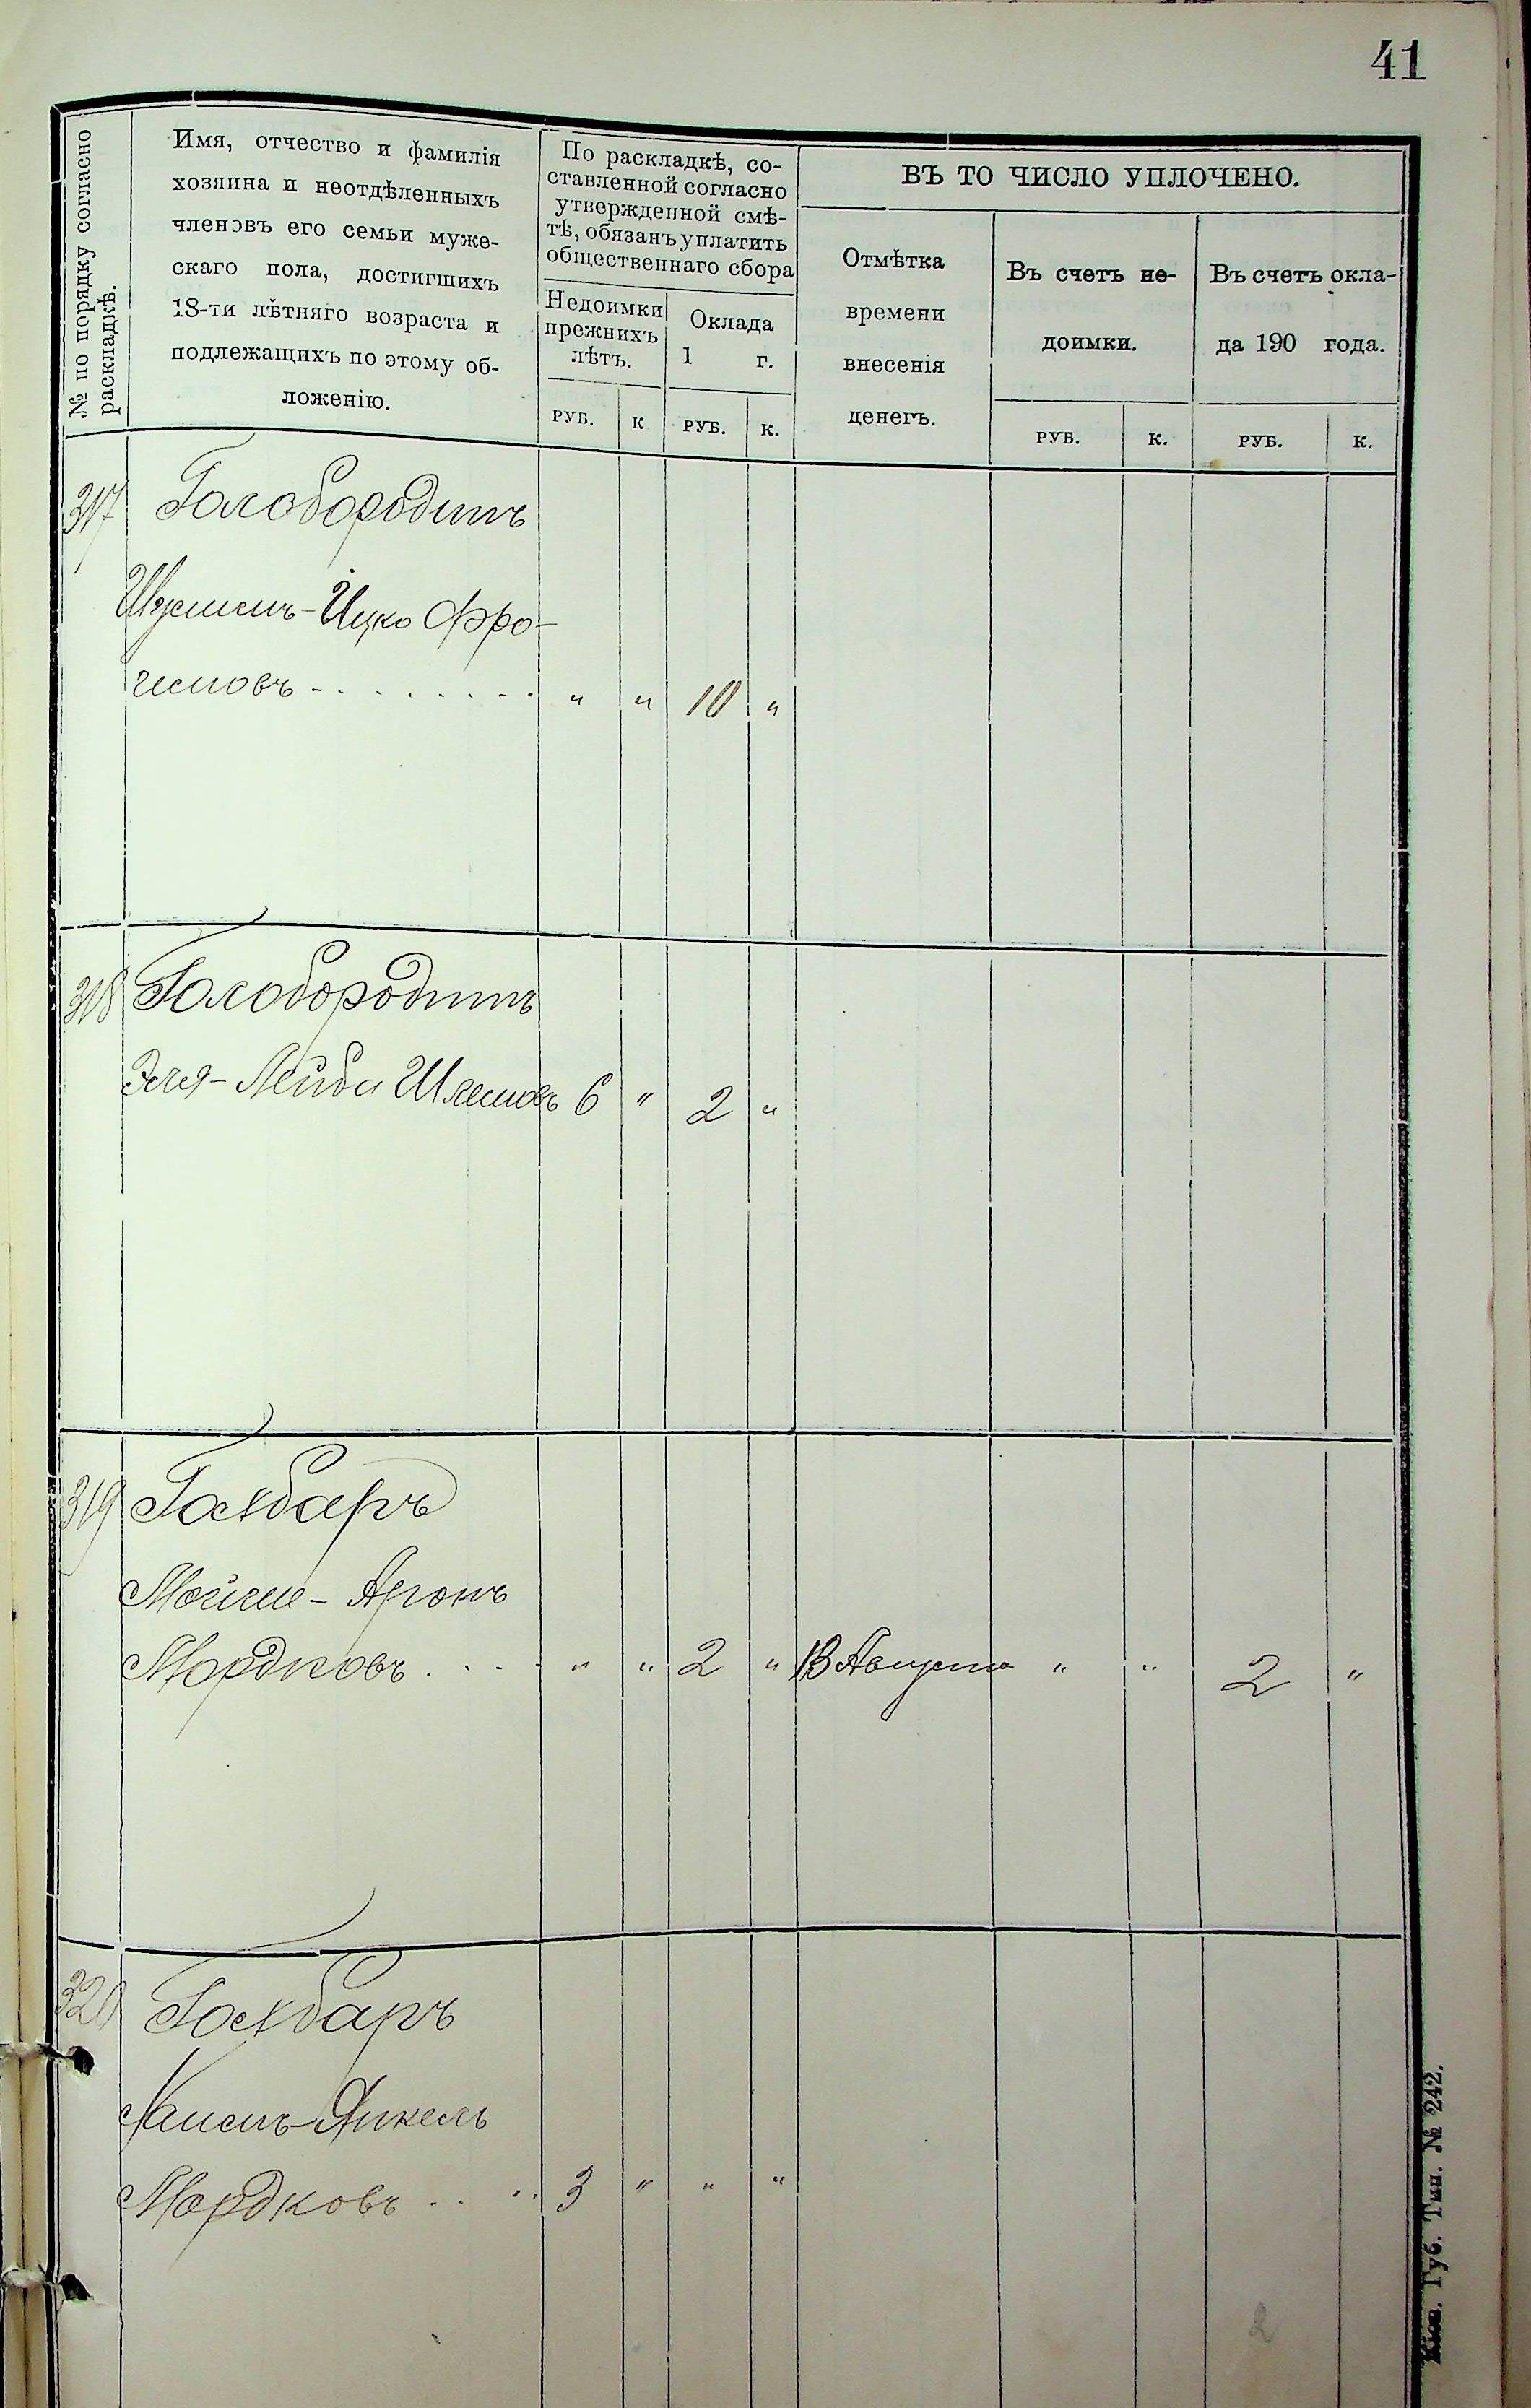 41
№ по порядку согласно
раскладкѣ.
Имя, отчество и фамилія
хозяина и неотдѣленныхъ
членовъ его семьи муже-
скаго пола, достигшихъ
18-ти лѣтняго возраста и
подлежащихъ по этому об-
ложенію.
По раскладкѣ, со-
ставленной согласно
утвержденной смѣ-
тѣ, обязанъ уплатить
общественнаго сбора
Недоимки
прежнихъ
лѣтъ.
Оклада
1 г.
РУБ. К РУБ. К.
ВЪ ТО ЧИСЛО УПЛОЧЕНО.
Отмѣтка
времени
внесенія
денегъ.
Въ счетъ не-
доимки.
РУБ. К.
Въ счетъ окла-
да 190 года.
РУБ. К.
317 Голобородинъ
Ицко Фро-
" " 10 "
318 Голобородинъ
Эля-Лейба Шлемовъ 6 " 2 "
319
Мойше-Аронъ
Мордковъ . . . . " " 2 " 13 Августа " " 2 "
320
Хаимъ-Янкель
Мордковъ . . . . 3 " " "
2
Кіев. Губ. Тип. № 242.